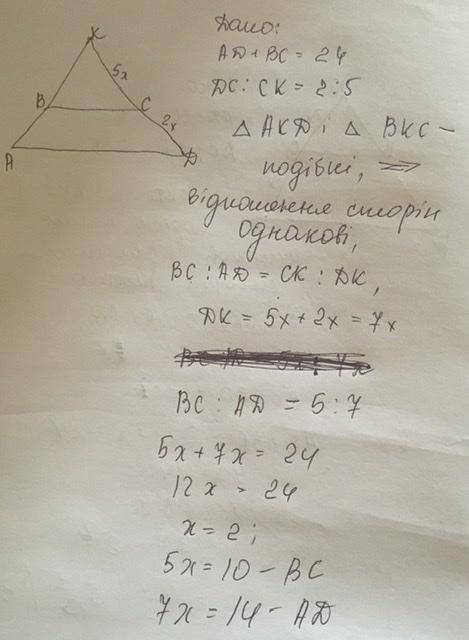 K
5x
B
C
2x
A
D
Дано:
AD + BC = 24
DC : CK = 2:5
△ AKD i △ BKC –
подібні, ⇒
відношення сторін
однакові,
BC : AD = CK : DK,
DK = 5x + 2x = 7x
BC : AD = 5 : 7
5x + 7x = 24
12x = 24
x = 2;
5x = 10 – BC
7x = 14 – AD